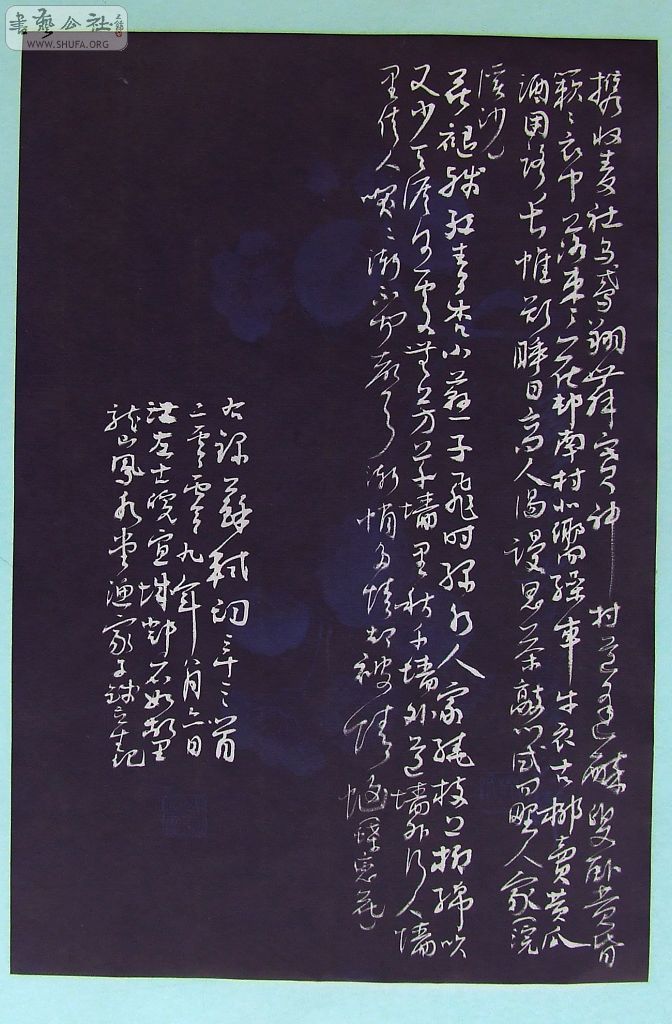 書藝公社
WWW.SHUFA.ORG
携收麦社乌鸢翔舞赛神村道逢醉叟卧黄昏
簌〻衣巾落枣〻花村南村北响缲车牛衣古柳卖黄瓜
酒困路长惟欲睡日高人渴谩思茶敲门试问野人家 浣
溪沙
花褪残红青杏小燕子飞时绿水人家绕枝上柳绵吹
又少天涯何处无芳草墙里秋千墙外道墙外行人墙
里佳人笑〻渐不闻声渐悄多情却被情恼蝶恋花
右録蘇軾词三十三首
二零零九年月六日
江左士皖宣城鄰石如
龙山凤水堂渔家子钱立生記